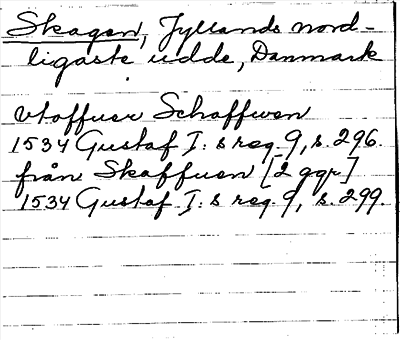 Skagen, Jyllands nord-
ligaste udde, Danmark
vtoffuer Schaffwen
1534 Gustaf I: s reg. 9, s. 296.
från Skaffuen [2 ggr]
1534 Gustaf I: s reg. 9, s. 299.